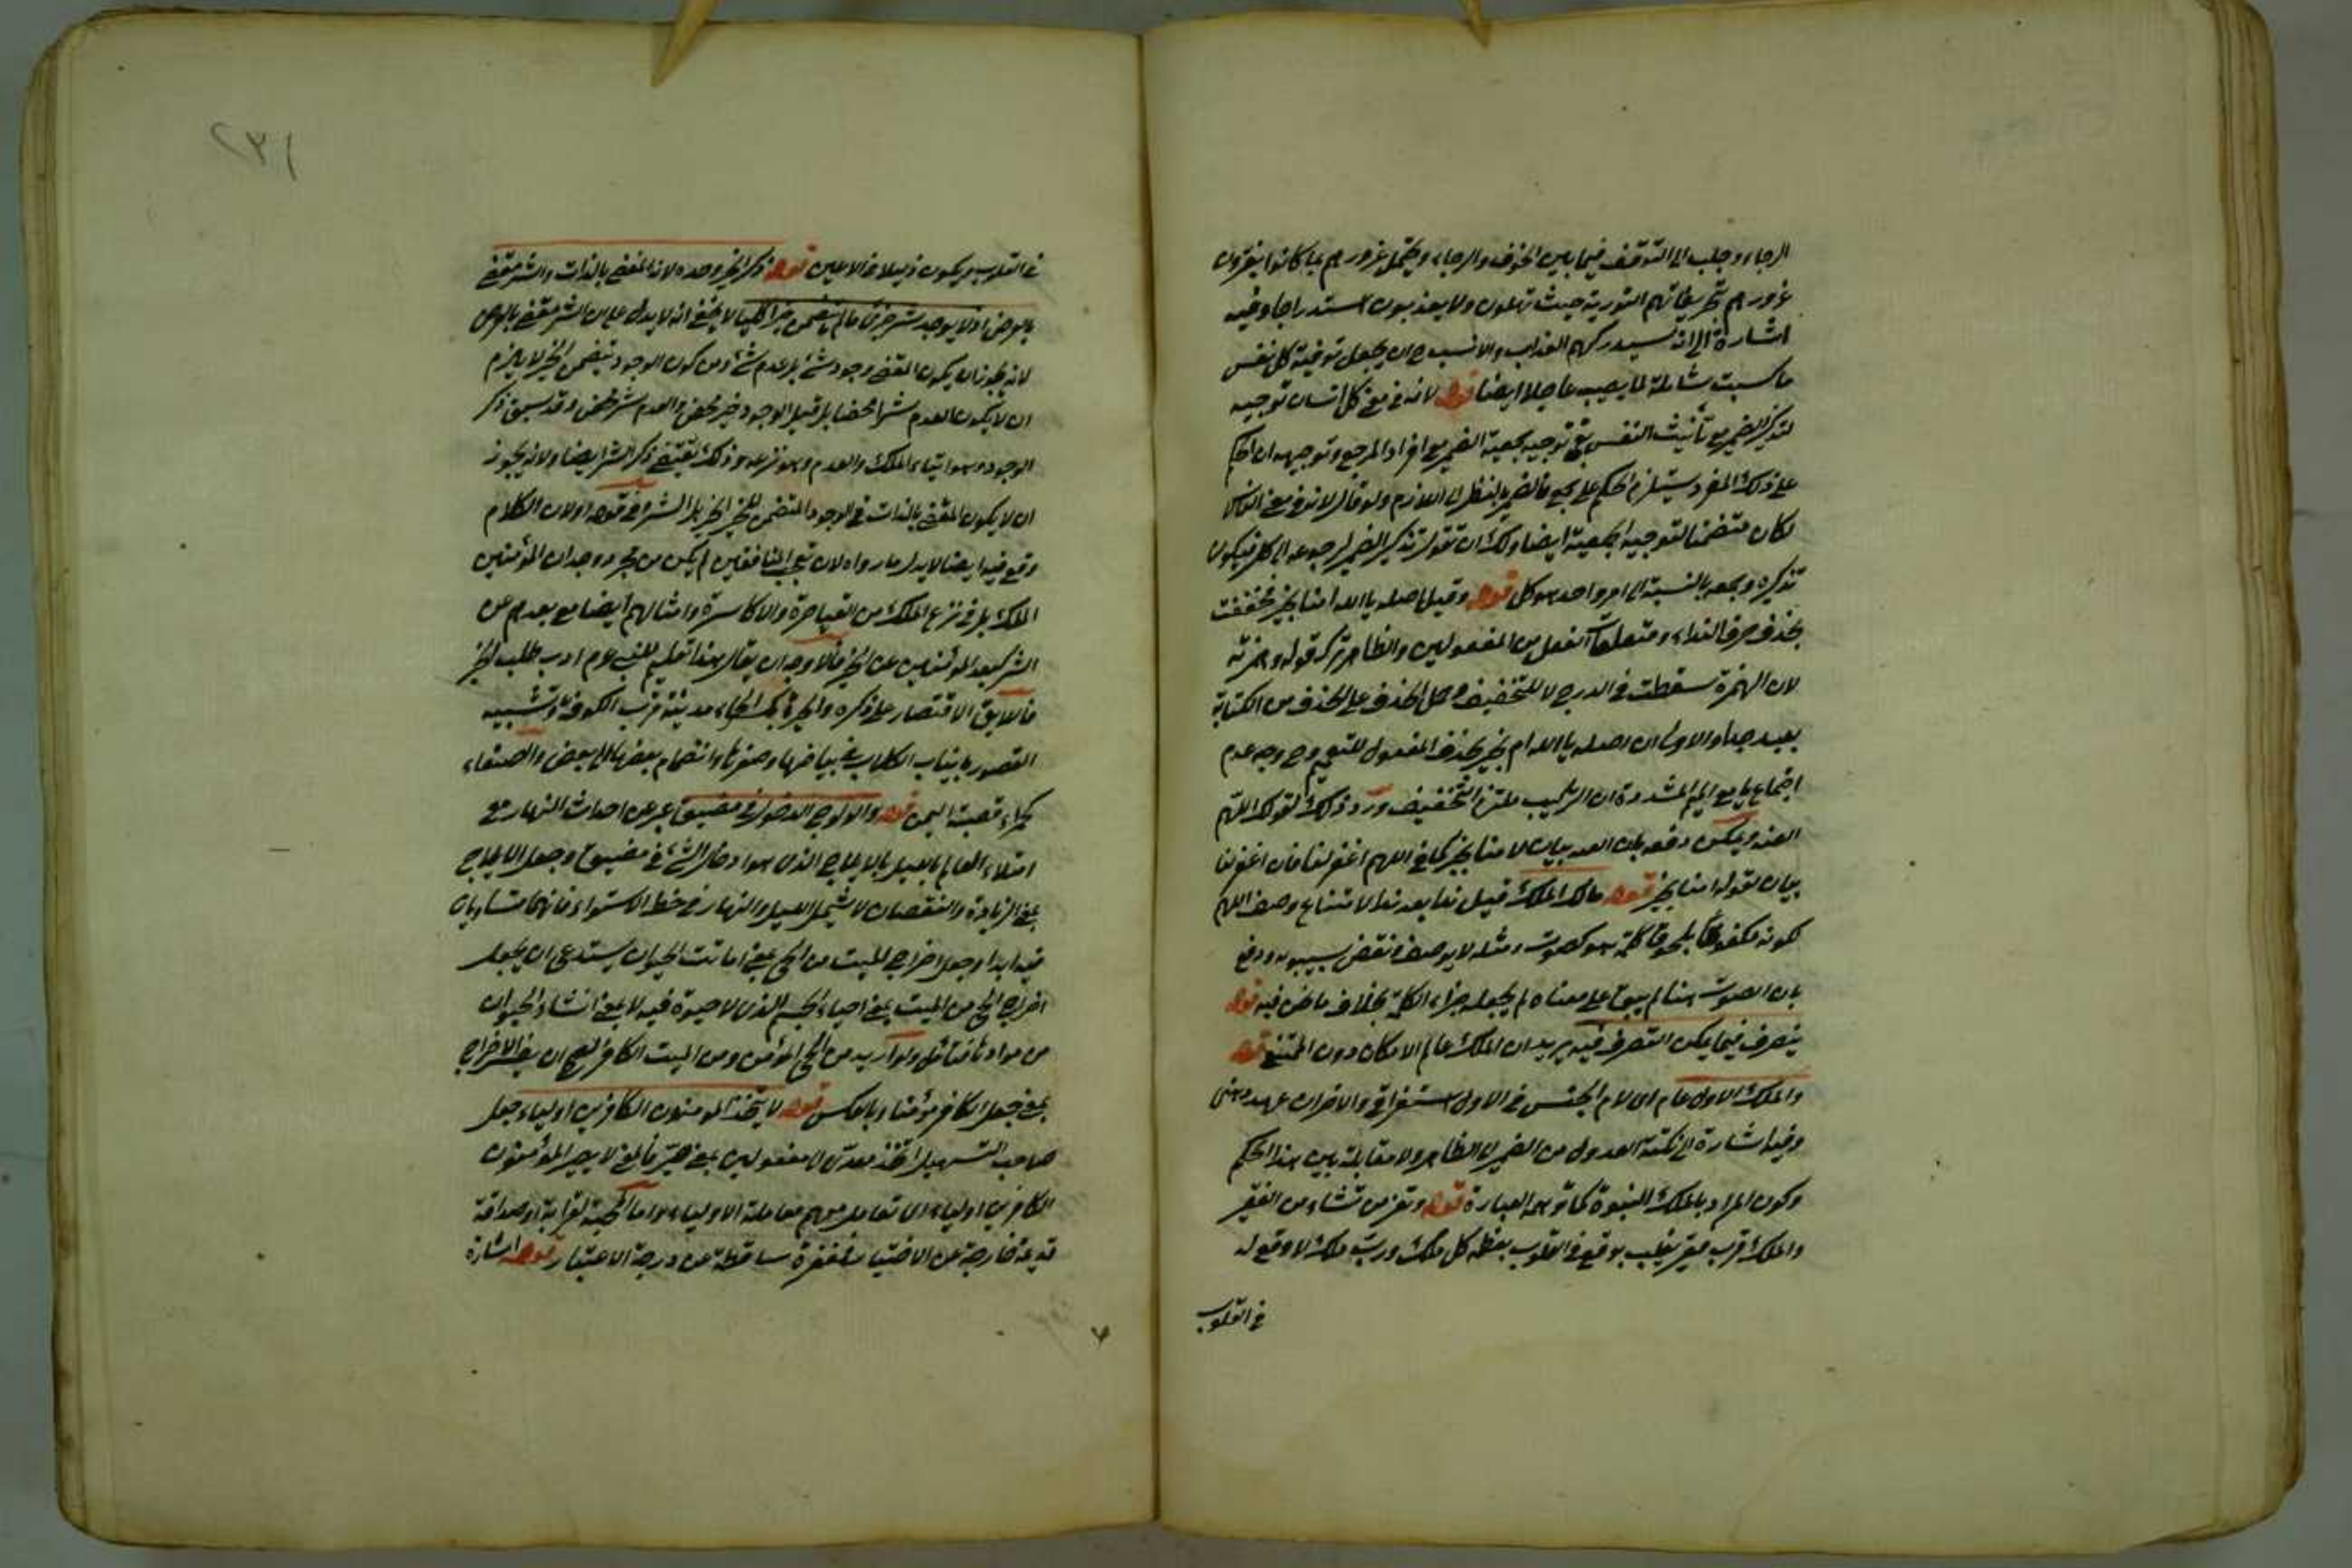 الرجاء وجلب الى التوقف فيما بين الخوف والرجاء ويحتمل غرورهم بما كانوا يفترون
غرورهم تحريفاتهم التورية حيث تمهلون ولا يعذبون استدراجا وفيه
اشارة الى انه سيدركهم العذاب والانسب ح ان يجعل توفية كل نفس
ما كسبت شاملة لما يصيب عاجلا ايضا قوله لانه في معنى كل انسان توجيه
لتذكير الضمير مع تأنيث النفس بقي توجيه جمعية الضمير مع افراد المرجع وتوجيهه ان الحكم
على ذلك المفرد يستلزم الحكم على جمع فالضمير بالنظر الى اللازم ولو قال لانه في معنى الناس
لكان متضمنا لتوجيه الجمعية ايضا ولك ان تقول تذكير الضمير لرجوعه الى كل فيكون
تذكيره وجمعه بالنسبة الى امر واحد هو كل قوله وقيل اصله يا الله امنا بخير فخففت
بحذف حرف النداء ومتعلقات الفعل من المفعولين والظاهر ترك قوله وهمزته
لان الهمزة سقطت في الدرج لا للتخفيف وحمل الحذف على الحذف من الكتابة
بعيد جدا والاولى ان اصله يا الله ام بخير بحذف المفعول للتعميم وح وجه عدم
اجتماع يا مع الميم المشددة ان التركيب ملتزم التخفيف ورد ذلك لقولك اللهم
العنه ويمكن دفعه بان العنه بيان لا منا بخير كما في اللهم اغفر لنا فان اغفر لنا
بيان لقوله امنا بخير قوله مالك الملك قيل نداء بعد نداء لامتناع وصف اللهم
لكونه مكفوفا بلحوق كلمة هو كصوت ومثله لا يوصف ونقض بسيبويه ودفع
بان الصوت هنا لم يبق على معناه لم يجعل جزاء الكلمة بخلاف ما نحن فيه قوله
يتصرف فيما يمكن التصرف فيه يريد ان الملك عالم الامكان دون الممتنع قوله
والملك الاول عام اى لام الجنس في الاول استغراق والاخران عهد ذهنى
وفيه اشارة الى نكتة العدول من الضمير الى الظاهر ولا مقابلة بين هذا الحكم
وكون المراد بالملك النبوة كما توهمه العبارة قوله وتعز من تشاء من الفقير
والملك فرب فقير يغلب بوقع في القلوب بعظمه كل ملك ورب ملك لا وقع له
في القلوب
في القلوب ويكون ذليلا في الاعين قوله ذكر الخير وحده لانه المقضي بالذات والشر مقضي
بالعرض اذ لا يوجد شر جزئي ما لم يتضمن خيرا كليا لا يخفى انه لا يدل على ان الشر مقضي بالعرض
لانه يجوز ان يكون المقضي وجود شئ بل عدم شئ ومن كون الوجود يتضمن الخير لا يلزم
ان لا يكون العدم شرا محضا بل قيل الوجود خير محض والعدم شر محض وقد سبق ذكر
الوجود وهو ايتاء الملك والعدم وهو نزعه وذلك يقتضي ذكر الشر ايضا ولانه يجوز
ان لا يكون المقضي بالذات في الوجود المتضمن للخير الخير بل الشر وفي قوله اولان الكلام
وقع فيه ايضا لا يدل ما رواه لان تعجب المنافقين لم يكن من مجرد وجدان المؤمنين
الملك بل في نزع الملك من القياصرة والاكاسرة وامثالهم ايضا مع بعدهم عن
الشر كبعد المؤمنين عن الخير فالاوجه ان يقال هذا تعليم للنبي عم ادب طلب الخير
فاللايق الاقتصار على ذكره والحيرة بكسر الحاء مدينة قرب الكوفة وتشبيه
القصور بانياب الكلاب في بياضها وصغرها وانضمام بعضها الى بعض والصنعاء
كحمراء قصبة اليمن قوله والولوج الدخول في مضيق عبر عن احداث النهار مع
امتلاء العالم بالليل بالايلاج الذى هو ادخال الشئ في مضيق وجعل الايلاج
بمعنى الزيادة والنقصان لا يشمل الليل والنهار في خط الاستواء فانهما متساويان
فيه ابدا وجعل اخراج الميت من الحي بمعنى اماتت الحيوان يستدعى ان يجعل
اخراج الحي من الميت بمعنى احياء الجسم الذى لا حيوة فيه لا بمعنى انشاء الحيوان
من مواد ها فتأمل ولو اريد من الحي المؤمن ومن الميت الكافر لصح ان يفسر الاخراج
بمعنى جعل الكافر مؤمنا وبالعكس قوله لا يتخذ المومنون الكافرين اولياء جعل
صاحب التسهيل اتخذ معدى الى مفعولين بمعنى صير فالمعنى لا يصير المؤمنون
الكافرين اولياء اى تعاملوا معهم معاملة الاولياء واما المحبة لقرابة او صداقة
قديمة خارجة عن الاختيار فمغتفرة ساقطة عن درجة الاعتبار قوله اشارة